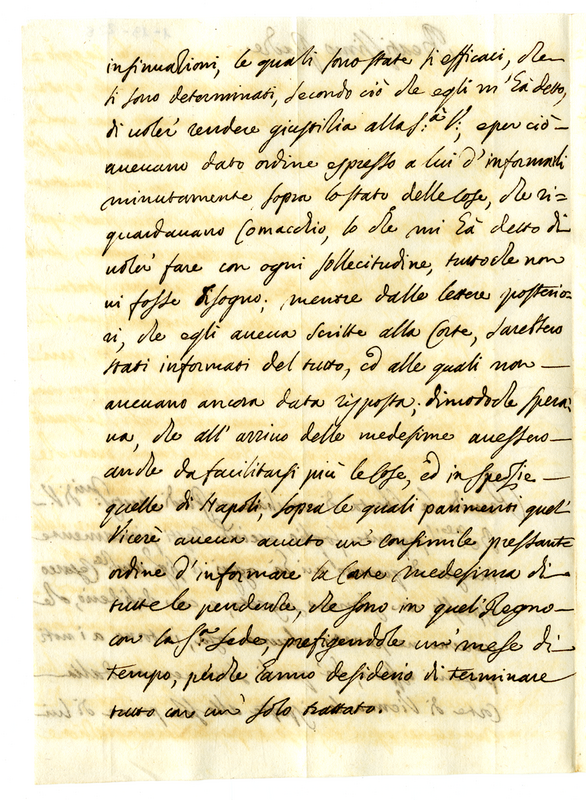 insinuazioni, le quali sono state sì efficaci, che
si sono determinati, secondo ciò che egli m'hà detto,
di voler rendere giustizia alla S.tà V.ra, e per ciò
avevano dato ordine espresso a lui d'informarli
minutamente sopra lo stato delle Cose, che ri=
guardavano Comacchio, lo che mi hà detto di
voler fare con ogni sollecitudine, tutto che non
vi fosse bisogno; mentre dalle lettere posterio=
ri, che egli aveva scritte alla Corte, sarebbero
stati informati del tutto, ed alle quali non
avevano ancora data risposta; dimodoche spera=
va, che all'arrivo delle medesime avessero
anche da facilitarsi più le Cose, ed in spezie
quelle di Napoli, sopra le quali parimenti quel
Vicerè aveva avuto un consimile pressante
ordine d'informare la Corte medesima di
tutte le pendenze, che sono in quel Regno
con la S.ta Sede, prefigendole un mese di
tempo, perche hanno desiderio di terminare
tutto con un solo trattato.